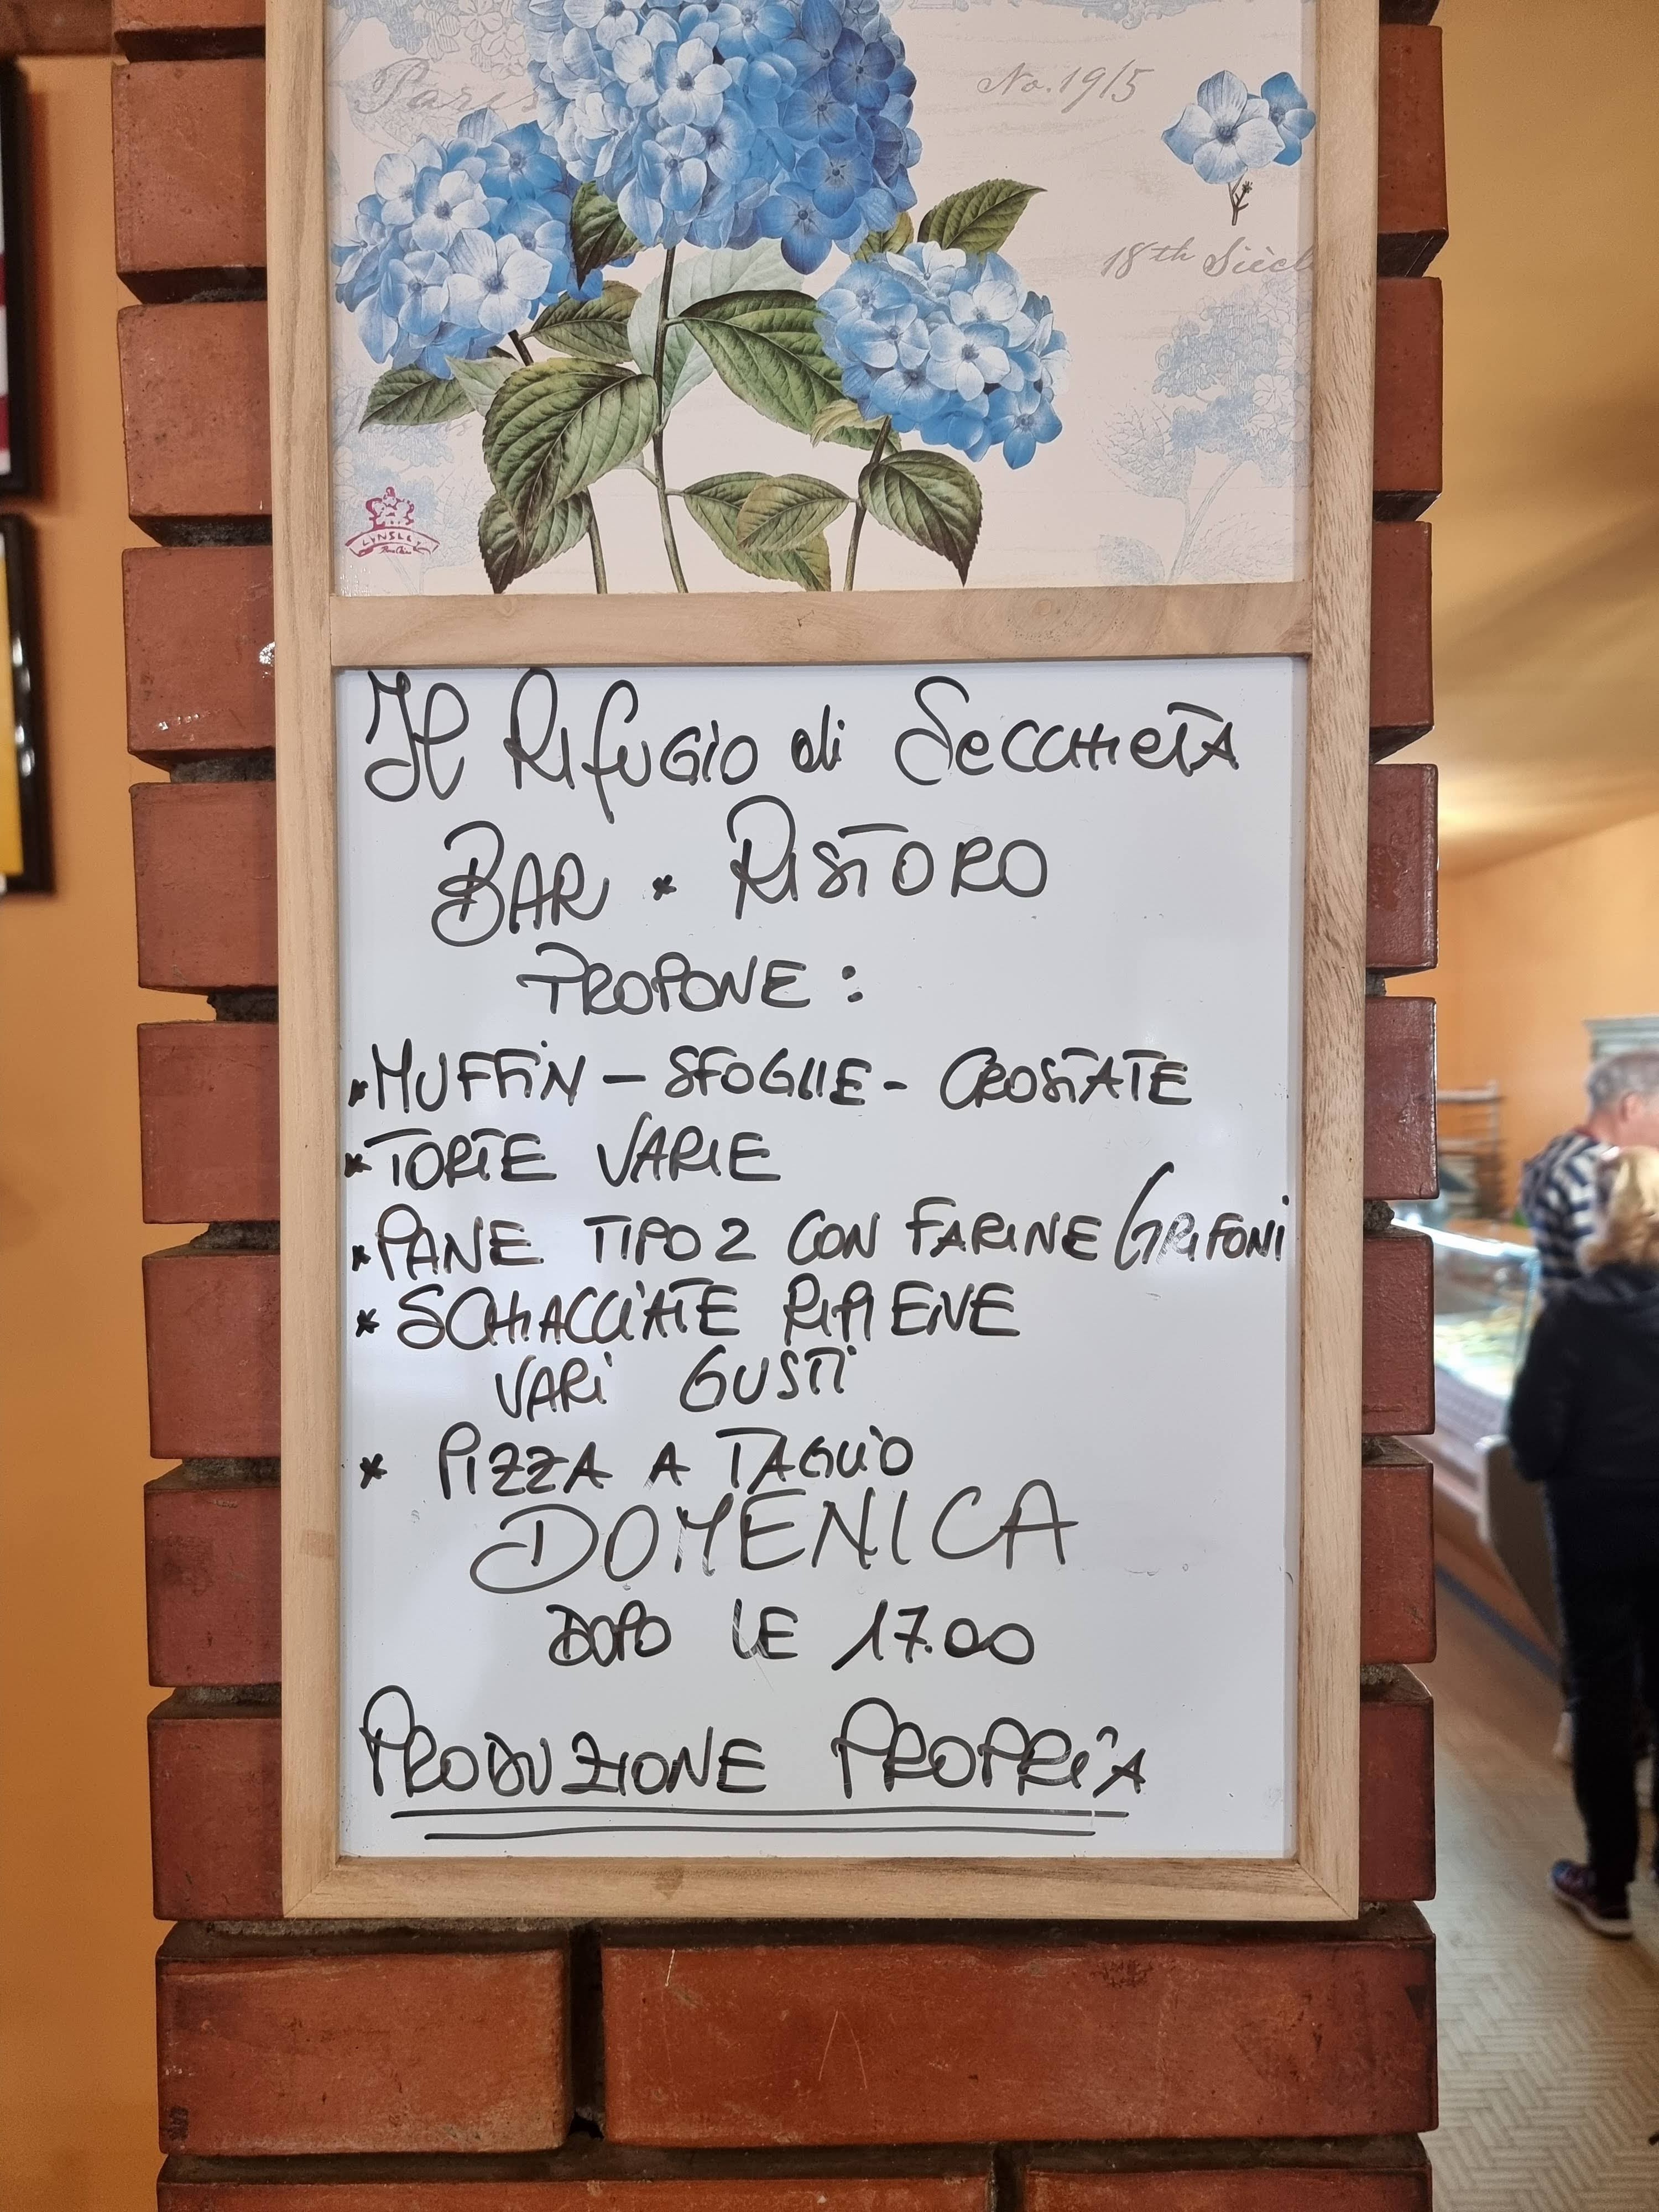 Paris
No. 19/5
18th Siècl
LYNSLEY
Il Rifugio di Seccheta
BAR * RISTORO
PROPONE :
*MUFFIN - SFOGLIE - CROSTATE
*TORTE VARIE
*PANE TIPO 2 CON FARINE GRIFONI
* SCHIACCIATE RIPIENE
VARI GUSTI
* PIZZA A TAGLIO
DOMENICA
DOPO LE 17.00
PRODUZIONE PROPRIA